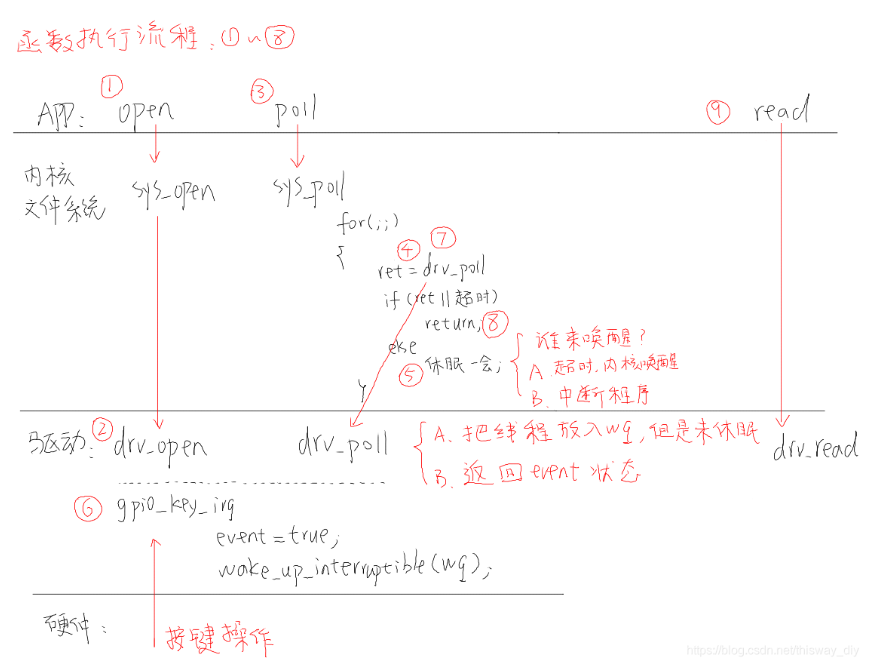 函数执行流程:①~⑧
① ③
APP: open poll ⑨ read
内核
文件系统
sys_open sys_poll
for(;;)
{
④ ⑦
ret=drv_poll
if(ret||超时)
return; ⑧
else
⑤ 休眠一会;
谁来唤醒?
A 超时,内核唤醒
B. 中断程序
}
驱动: ② drv_open drv_poll drv_read
A. 把线程放入wq,但是未休眠
B. 返回event状态
⑥ gpio_key_irq
event=true;
wake_up_interruptible(wq);
硬件:
按键操作
https://blog.csdn.net/thisway_diy